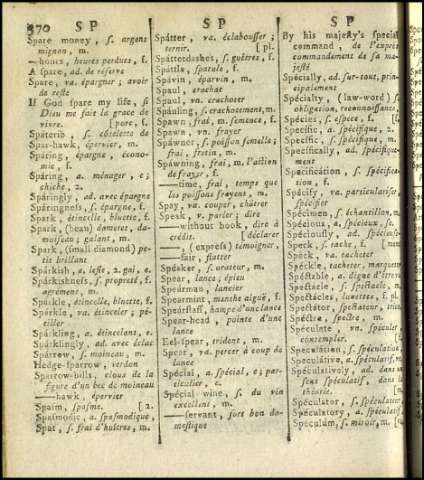 370 S P
S P
S P
Spare money, s. argent
mignon, m.
—hours, heures perdues, f.
A spare, ad. de réserve
Spare, va. épargner; avoir
de reste
If God spare my life, si
Dieu me fait la grace de
vivre. [porc, f.
Späterib, s. côtelette de
Spar-hawk, épervier, m.
Spáring, épargne, économie, f.
Spáring, a. ménager, e;
chiche, 2.
Spáringly, ad. avec épargne
Spáringneſs, s. épargne, f.
Spark, étincelle, bluette, f.
Spark, (beau) dameret, damoiſeau; galant, m.
Spark, (ſmall diamond) petit brillant
Spárkish, a. leſte, 2. gai, e.
Spárkishneſs, s. propreté, f.
agrément, m.
Spárkle, étincelle, bluette, f.
Spárkle, va. étinceler; pétiller
Spárkling, a. étincelant, e.
Spárklingly, ad. avec éclat
Spárrow, s. moineau, m.
Hedge-ſparrow, verdon
Sparrow-bills, clous de la
figure d'un bec de moineau
—hawk, épervier
Spaſm, ſpaſme. [2.
Spaſmodic, a. ſpaſmodique,
Spat, s. frai d'huîtres, m.
Spátter, va. éclabouſſer;
ternir. [pl.
Spátterdaſhes, s. guêtres, f.
Spáttle, ſpatule, f.
Spávin, éparvin, m.
Spaul, crachat
Spaul, va. crachoter
Spáuling, s. crachotement, m.
Spawn, frai, m. ſemence, f.
Spawn, vn. frayer
Spáwner, s. poiſſon femelle;
frai, fretin, m.
Spáwning, frai, m. l'action
de frayer, f.
—time, frai, temps que
les poiſſons frayent, m.
Spay, va. couper, châtrer
Speak, v. parler; dire
—without book, dire à
crédit. [déclarer
—, (expreſs) témoigner,
—fair, flatter
Spéaker, s. orateur, m.
Spear, lance; épieu
Spéarman, lancier
Spearmint, menthe aiguë, f.
Spéarſtaff, hampe d'une lance
Spear-head, pointe d'une
lance
Eel-ſpear, trident, m.
Spear, va. percer à coup de
lance
Spécial, a. ſpécial, e; particulier, e.
Spécial wine, s. du vin
excellent, m.
—ſervant, fort bon domeſtique
By his majeſty's ſpecial
command, de l'exprès
commandement de ſa majeſté
Spécially, ad. ſur-tout, principalement
Spécialty, (law-word) s.
obligation, reconnoiſſance,
Spécies, s. eſpece, f. [f.
Specific, a. ſpécifique, 2.
Specific, s. ſpécifique, m.
Specifically, ad. ſpécifiquement
Specification, s. ſpécification, f.
Spécify, va. particulariſer,
ſpécifier
Spécimen, s. échantillon, m.
Spécious, a. ſpécieux, ſe.
Spéciouſly, ad.
Speck, s. tache, f.
Speck, va. tacheter
Spéckle, tacheter, marqueter
Spéctable, a. digne d'être
Spéctacle, s. ſpectacle, m.
Spéctacles, lunettes, f. pl.
Spectátor, ſpectateur,
Spéctre, ſpectre, m.
Spéculate, vn. ſpéculer,
contempler. [f.
Speculátion, s. ſpéculation,
Spéculative, a. ſpéculatif, ve.
Spéculatively, ad. dans un
ſens ſpéculatif, dans la
théorie.
Spéculator, s. ſpéculateur,
Spéculatory, a. ſpéculatif,
Spéculum, s. miroir, m.